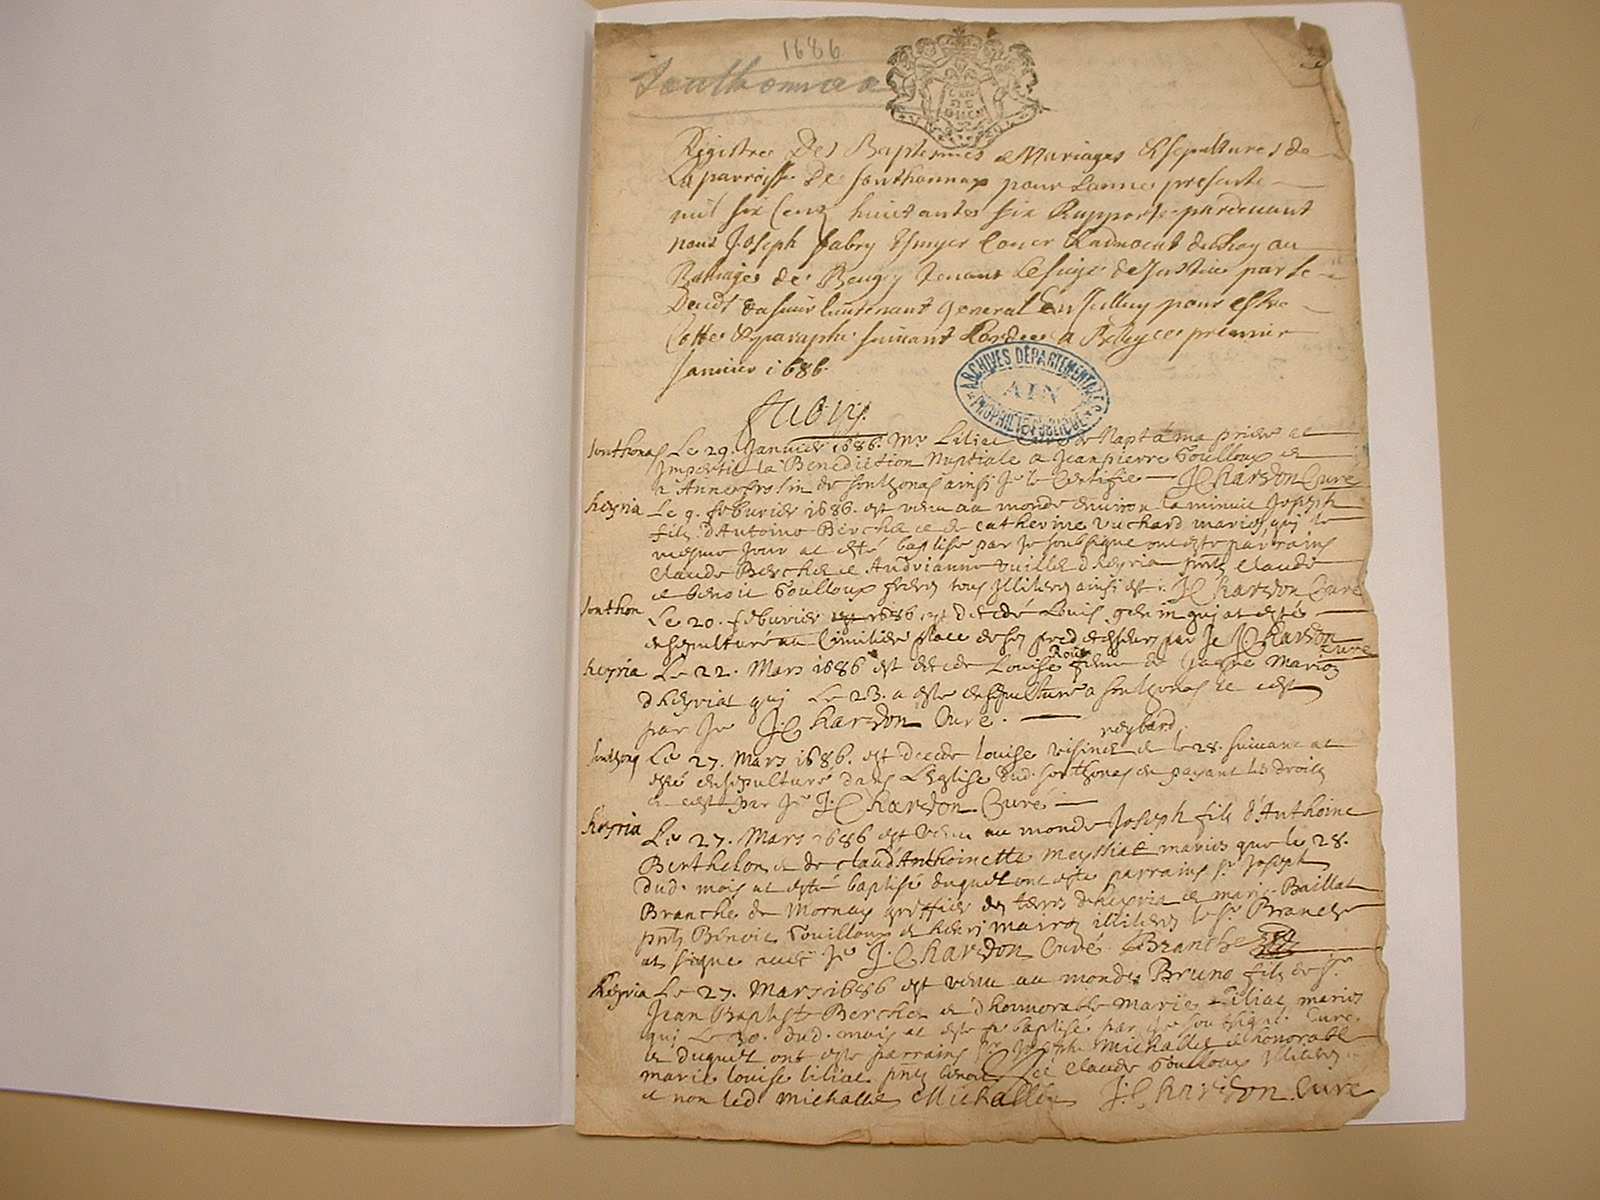 1686
Sonthonnax
Registre Des Baptesmes & Mariages & sepultures de
La parroisse De sonthonnax pour Lanné presente
mil six Centz huictantes six Rapporte pardevant
nous Joseph fabry Coner & advocat du Roy au
Balliage de Beugey tenant Le siege de Justice par le
lieutenant general Civil pour estre
Cotté & paraphé suivant Lordre a Belley ce premier
Janvier 1686
fabry
ARCHIVES DÉPARTEMENTALES
AIN
PROPRIÉTÉ PUBLIQUE
sonthonas Le 29. Janvier 1686. Mr Liliat Curé de Napt a ma priere at
Imparti la Benediction Nuptiale a Jeanpierre Goulloux et
a de sonthonas ainsi Je le Certifie J. Chardon Curé
heyria Le 9. feburier 1686. est venu au monde environ la minuit Joseph
fils d'Antoine Berchet et de catherine vuchard mariés qui le
mesme Jour at esté baptisé par Je soubsigné ont esté parrains
Claude Berchet et Andrianne vuillet d'heyria pntz Claude
et benoit Goulloux freres tous illiteres ainsi est. J. Chardon Curé
sonthon Le 20. feburier 1686 est decedé Louis qui at estés
ensepulturé au Cimitiere place de ses predecesseurs par Je J. Chardon
Curé
heyria Le 22. Mars 1686 est decede Louise Roux femme de Marion
d'heyriat qui Le 23. a este ensepulturé a sonthonas et cest
par Je J. Chardon Curé.
reybard
sonthonas Le 27. Mars 1686. est decede louise et le 28. suivant at
esté ensepulturé dans L'Eglise dud. sonthonas en payant les droits
et cest par Je J. Chardon Curé
heyria Le 27. Mars 1686 est venu au monde Joseph fils d'Anthoine
Berthelon et de claud'Anthoinette Meyssiat mariés que le 28.
dud. mois at esté baptisé duquel ont esté parrains sr Joseph
Branche de Mornay greffier des terres d'heyria et marie Baillat
pntz Benoit Goulloux et illiteres le sr Branche
at signé avec Je J. Chardon Curé Branche
heyria Le 27. Mars 1686 est venu au monde Bruno fils de sr
Jean Baptiste Berchet et d'honnorable Marie Liliat mariés
qui Le 30. dud. mois at esté baptisé par Je soubsigné Curé.
et duquel ont esté parrains sr Joseph Michallet et honorable
marie louise liliat pntz benoit et Claude Goulloux illiteres
et non led. Michallet Michallet J. Chardon Curé